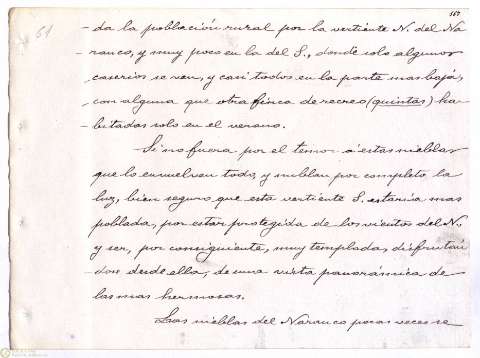 61
107
da la población rural por la vertiente N. del Na-
ranco, y muy poco en la del S., donde solo algunos
caserios se ven, y casi todos en la parte mas baja,
con alguna que otra finca de recreo (quintas) ha-
bitadas solo en el verano.
Si no fuera por el temor á estas nieblas
que lo envuelven todo, y nublan por completo la
luz, bien seguro que esta vertiente S. estaria mas
poblada, por estar protegida de los vientos del N.
y ser, por consiguiente, muy templada, disfrután-
dose desde ella, de una vista panorámica de
las mas hermosas.
Las nieblas del Naranco pocas veces se